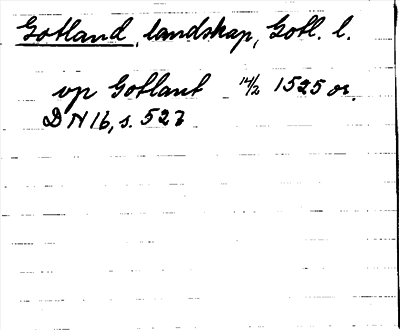 Gotland, landskap, Gotl. l.
vp Gotlant 14/2 1525 or.
DN 16, s. 527